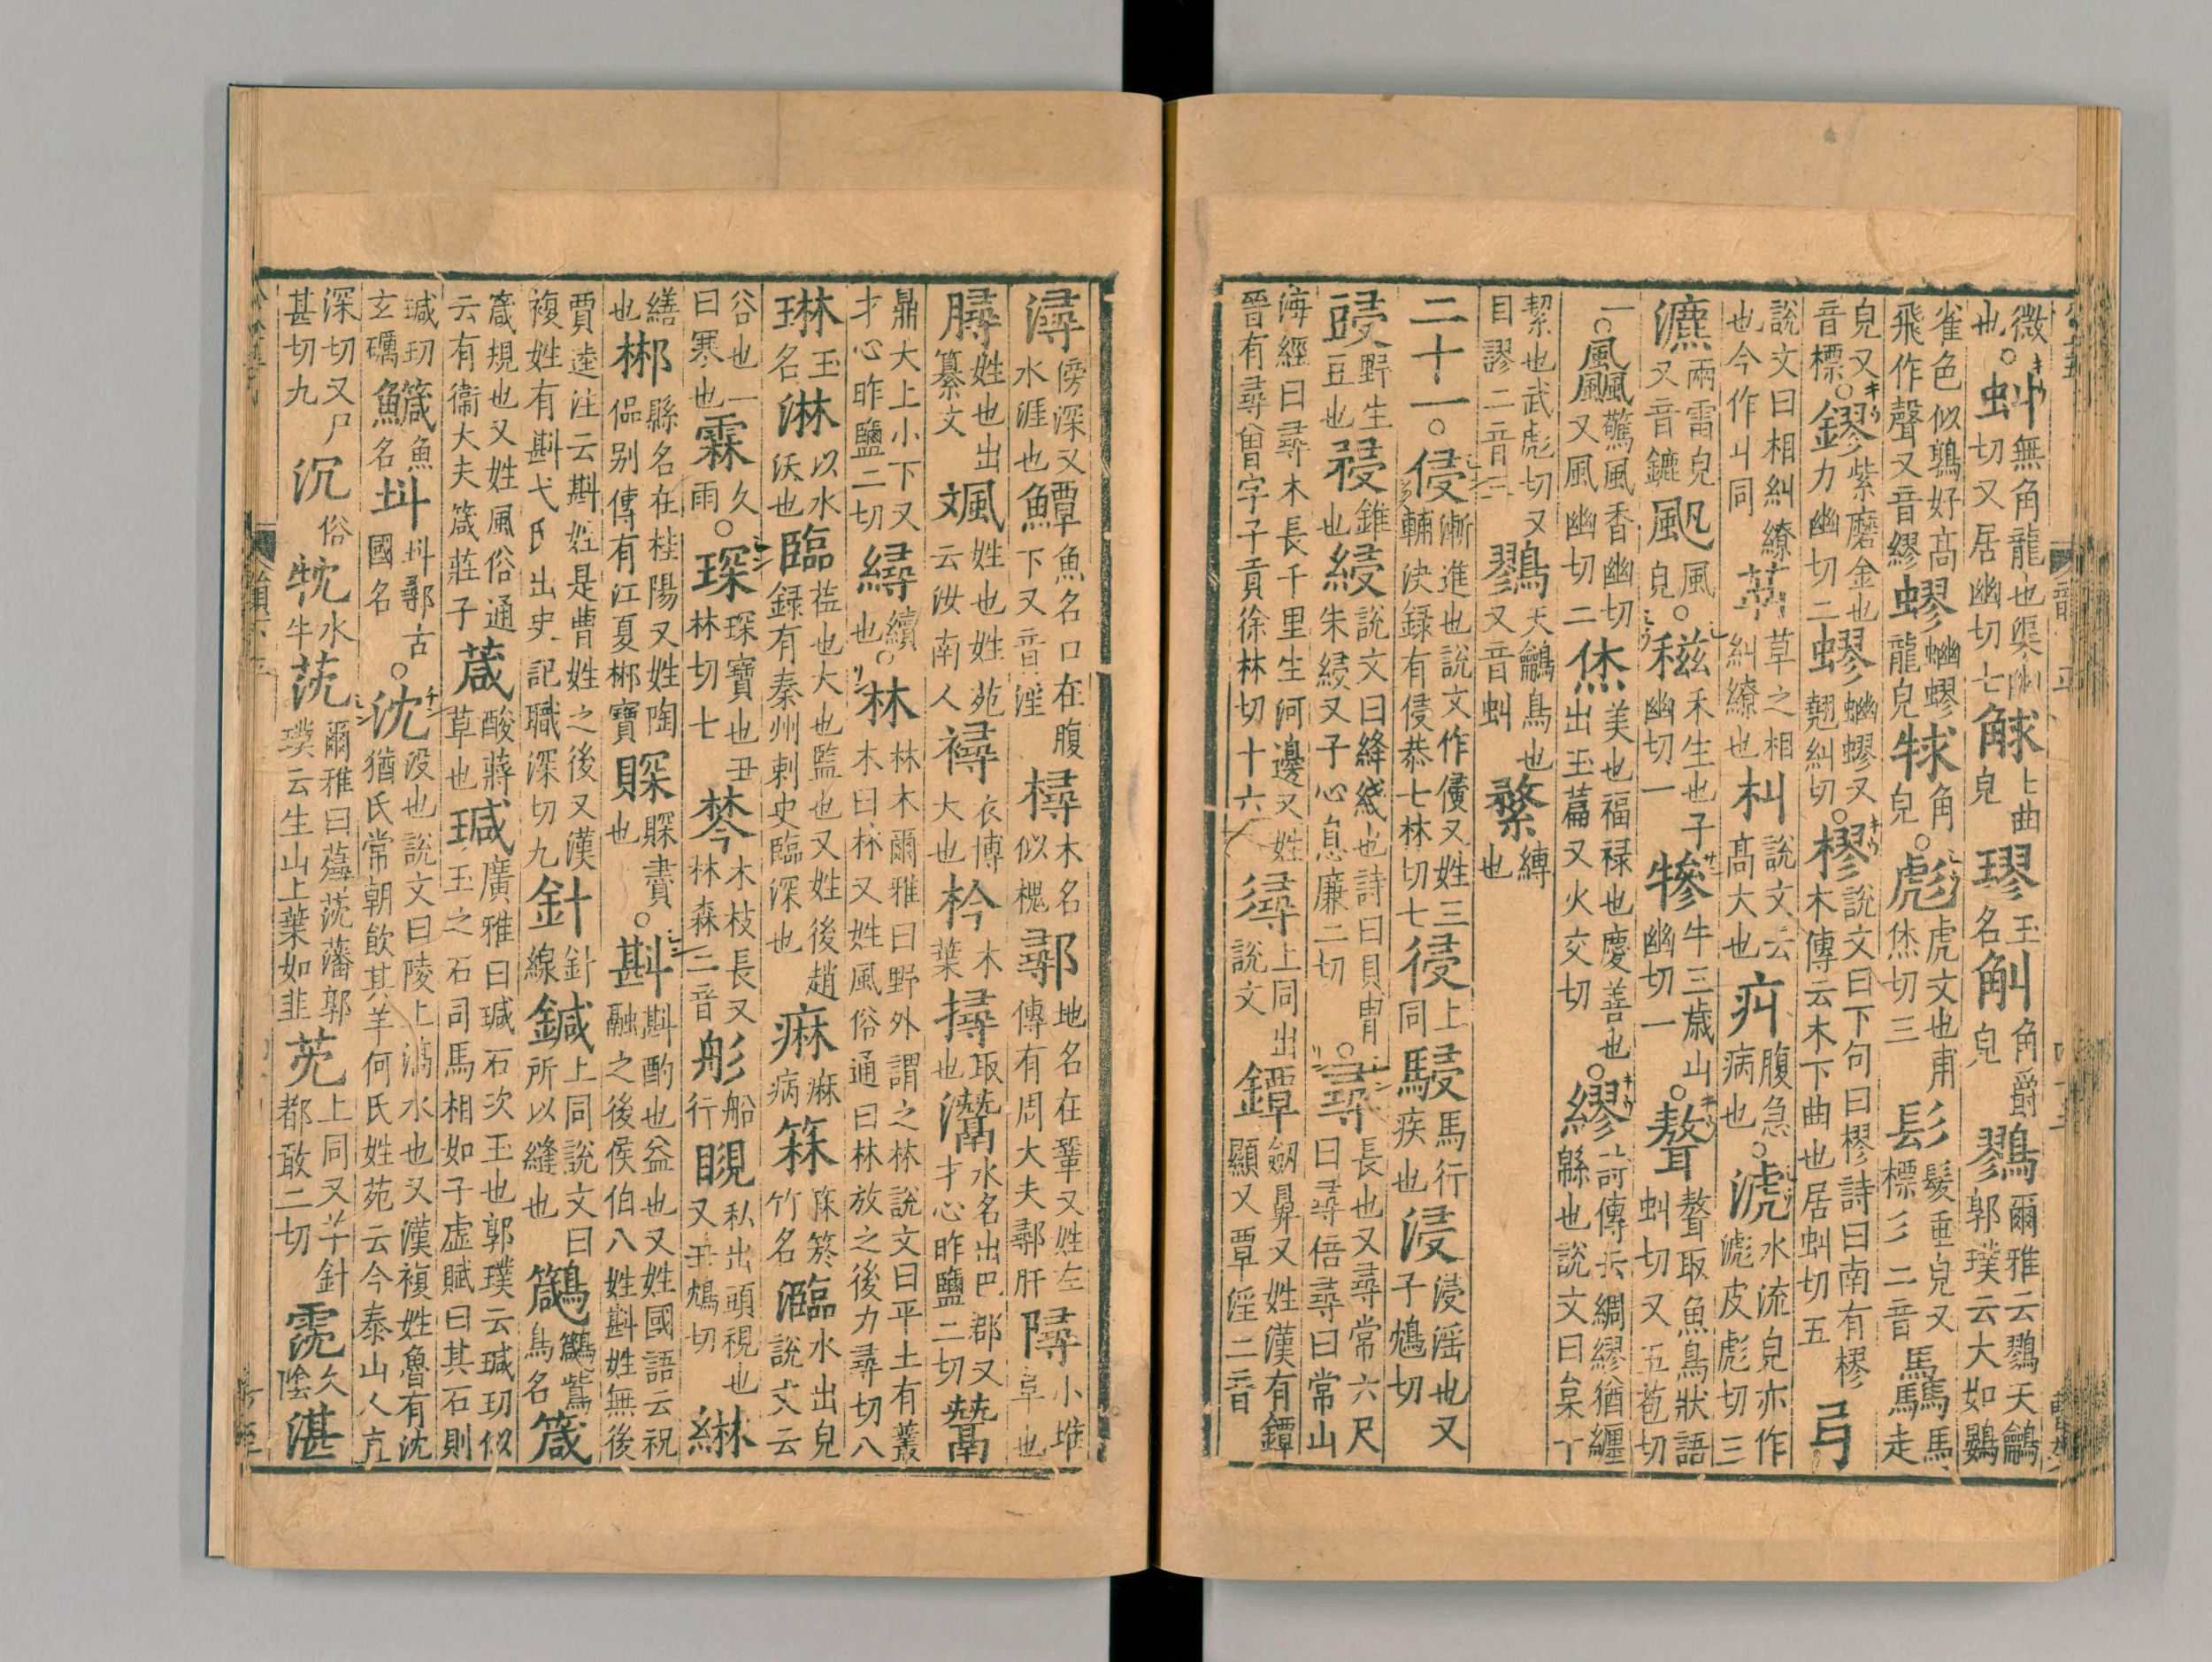 微也。虯無角龍也渠幽切又居幽切七觩上曲皃璆玉名觓角爵皃鷚爾雅云鷚天鸙郭璞云大如鷃
雀色似鶉好高飛作聲又音繆蟉蝴蟉龍皃𤘽角皃。彪虎文也甫烋切三髟髮垂皃又標彡二音驫馬走
皃又音標。鏐紫磨金也力幽切二蟉蝴蟉又翹糾切。樛說文曰下句曰樛詩曰南有樛木傳云木下曲也居虯切五丩
說文曰相糾繚也今作丩同艸草之相糾繚也朻說文云高大也疞腹急病也。淲水流皃亦作滮皮彪切三
瀌雨雪皃又音鑣颩風皃。稵禾生也子幽切一犙牛三歲山幽切一。聱聱取魚鳥狀語虯切又五苞切
一。飍驚風香幽切又風幽切二烋美也福祿也慶善也出玉篇又火交切。繆詩傳云綢繆猶纏緜也說文曰枲十
絜也武彪切又目謬二音三鷚天鸙鳥也又音虯縛也
二十一。侵漸進也說文作㑴又姓三輔決録有侵恭七林切七㑴上同駸馬行疾也浸浸淫也又子鴆切
野生豆也祲錐也綅說文曰絳綫也詩曰貝冑朱綅又子心息廉二切。尋長也又尋常六尺曰尋倍尋曰常山
海經曰尋木長千里生河邊又姓晉有尋曾字子貢徐林切十六上同出說文鐔劒鼻又姓漢有鐔顯又覃淫二音
潯傍深又水涯也鱏魚名口在腹下又音淫樳木名似槐鄩地名在鞏又姓左傳有周大夫鄩肝𨼔小堆阜也
䏈姓也出纂文䫻姓也姓苑云汝南人襑衣博大也枔木葉撏取也灊水名出巴郡又才心昨鹽二切鬵
鼎大上小下又才心昨鹽二切繜續也。林林木爾雅曰野外謂之林說文曰平土有叢木曰林又姓風俗通曰林放之後力尋切八
琳玉名淋以水沃也臨莅也大也監也又姓後趙録有秦州刺史臨深也痳痳病箖箖箊竹名瀶水出皃說文云
谷也一曰寒也霖久雨。琛琛寶也丑林切七棽木枝長又林森二音彤船行覙私出頭視也又丑鴆切綝
繕也郴縣名在桂陽又姓陶侃别傳有江夏郴寶賝賝賮也。斟斟酌也益也又姓國語云祝融之後侯伯八姓斟姓無後
賈逵注云斟姓是曹姓之後又漢複姓有斟弋氏出史記職深切九針針線鍼上同說文曰所以縫也鱵鷑鳥名箴
箴規也又姓風俗通云有衞大夫箴莊子葴酸蔣草也瑊廣雅曰瑊石次玉也郭璞云瑊玏似玉之石司馬相如子虛賦曰其石則
瑊玏玄礪鱵魚名㪷斟鄩古國名。沈沒也說文曰陵上滈水也又漢複姓魯有沈猶氏常朝飲其羊何氏姓苑云今泰山人直
深切又尸甚切九沉俗牞水牛莐爾雅曰薚莐藩郭璞云生山上葉如韭芫上同又羊針都敢二切霃久陰湛